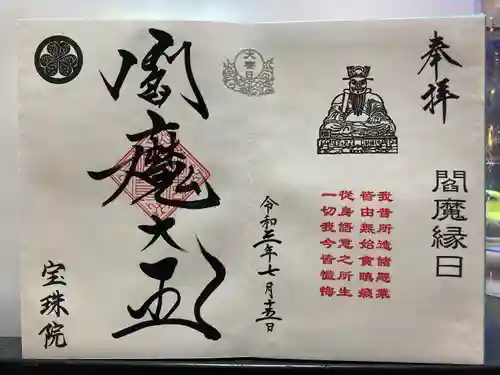 奉拝
閻魔縁日
我昔所造諸悪業
皆由無始貪瞋癡
従身語意之所生
一切我今皆懺悔
大暑日
令和三年七月十五日
閻魔大王
宝珠院